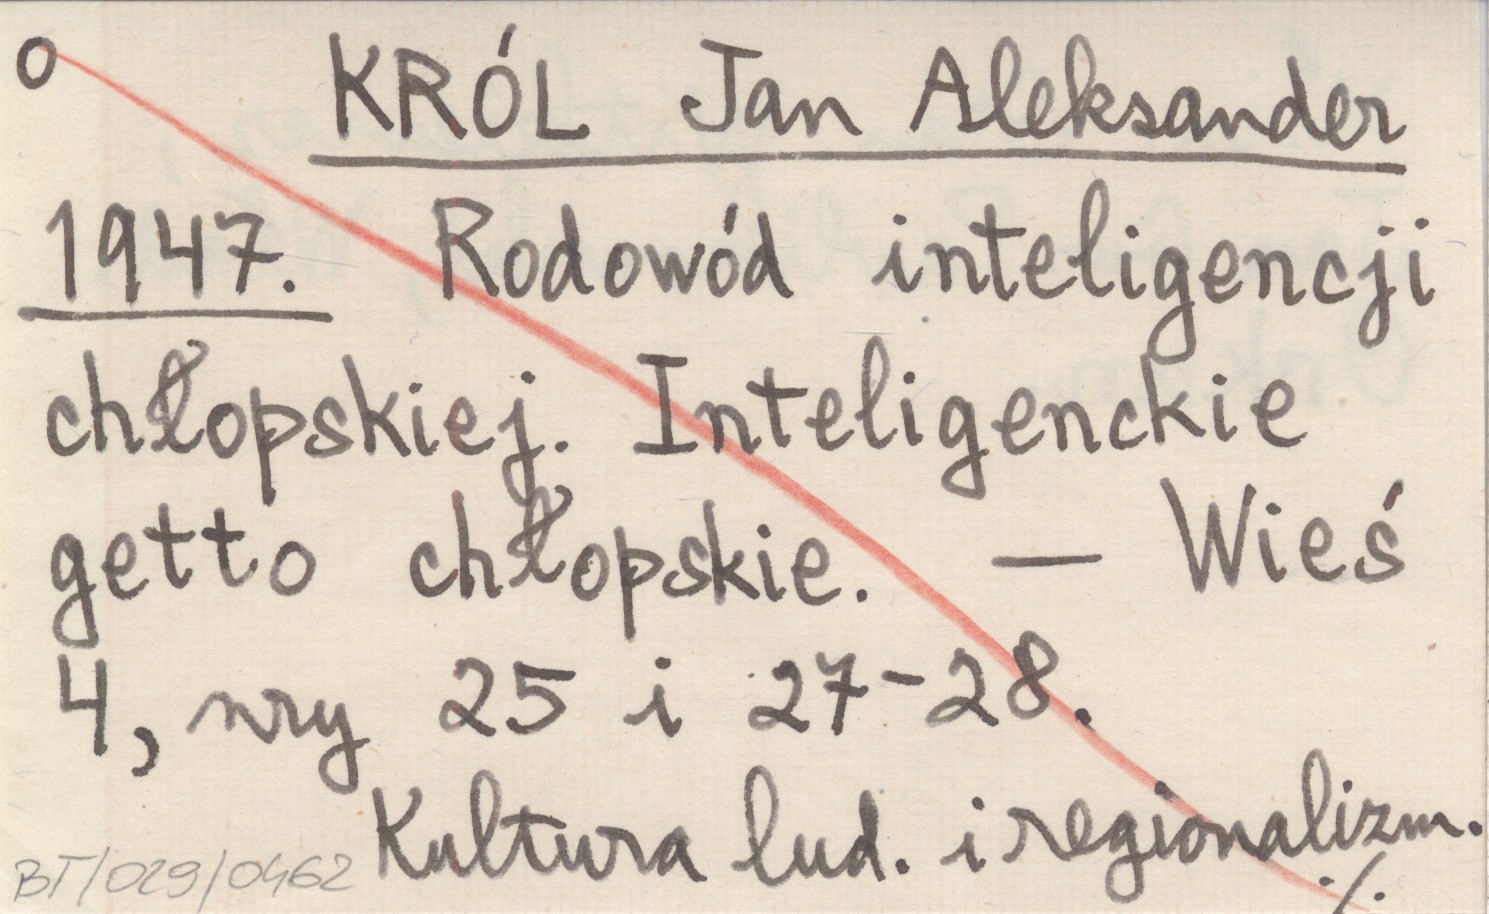 o KRÓL Jan Aleksander
1947. Rodowód inteligencji
chłopskiej. Inteligenckie
getto chłopskie. — Wieś
4, nry 25 i 27-28.
Kultura lud. i regionalizm.
BT/029/0462 ./.